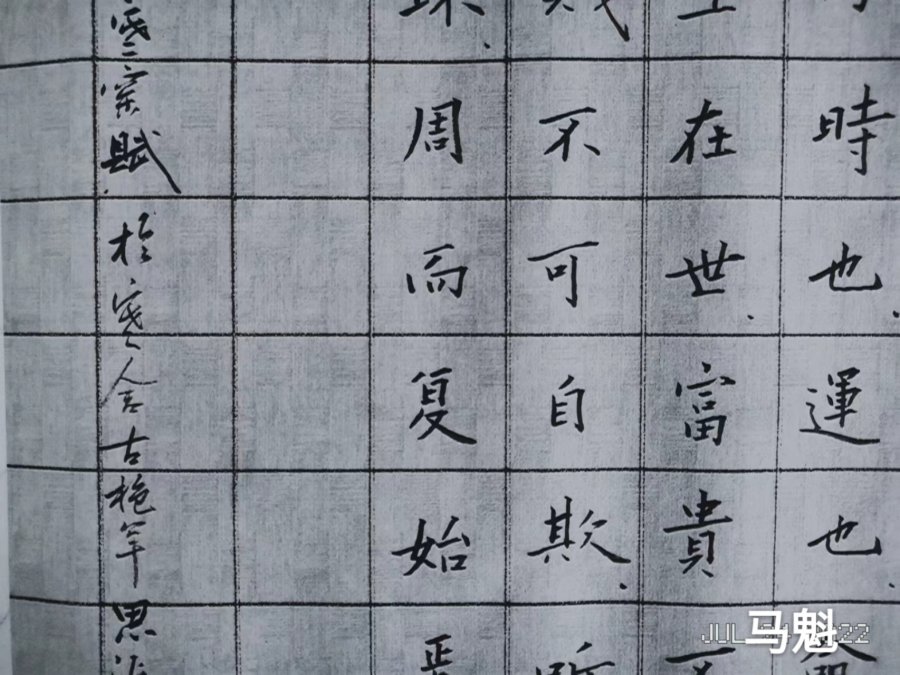 時也運也
在世富貴不
不可自欺
周而复始
寒窑赋
於寒舍古艳年思
JUL 2022
马魁